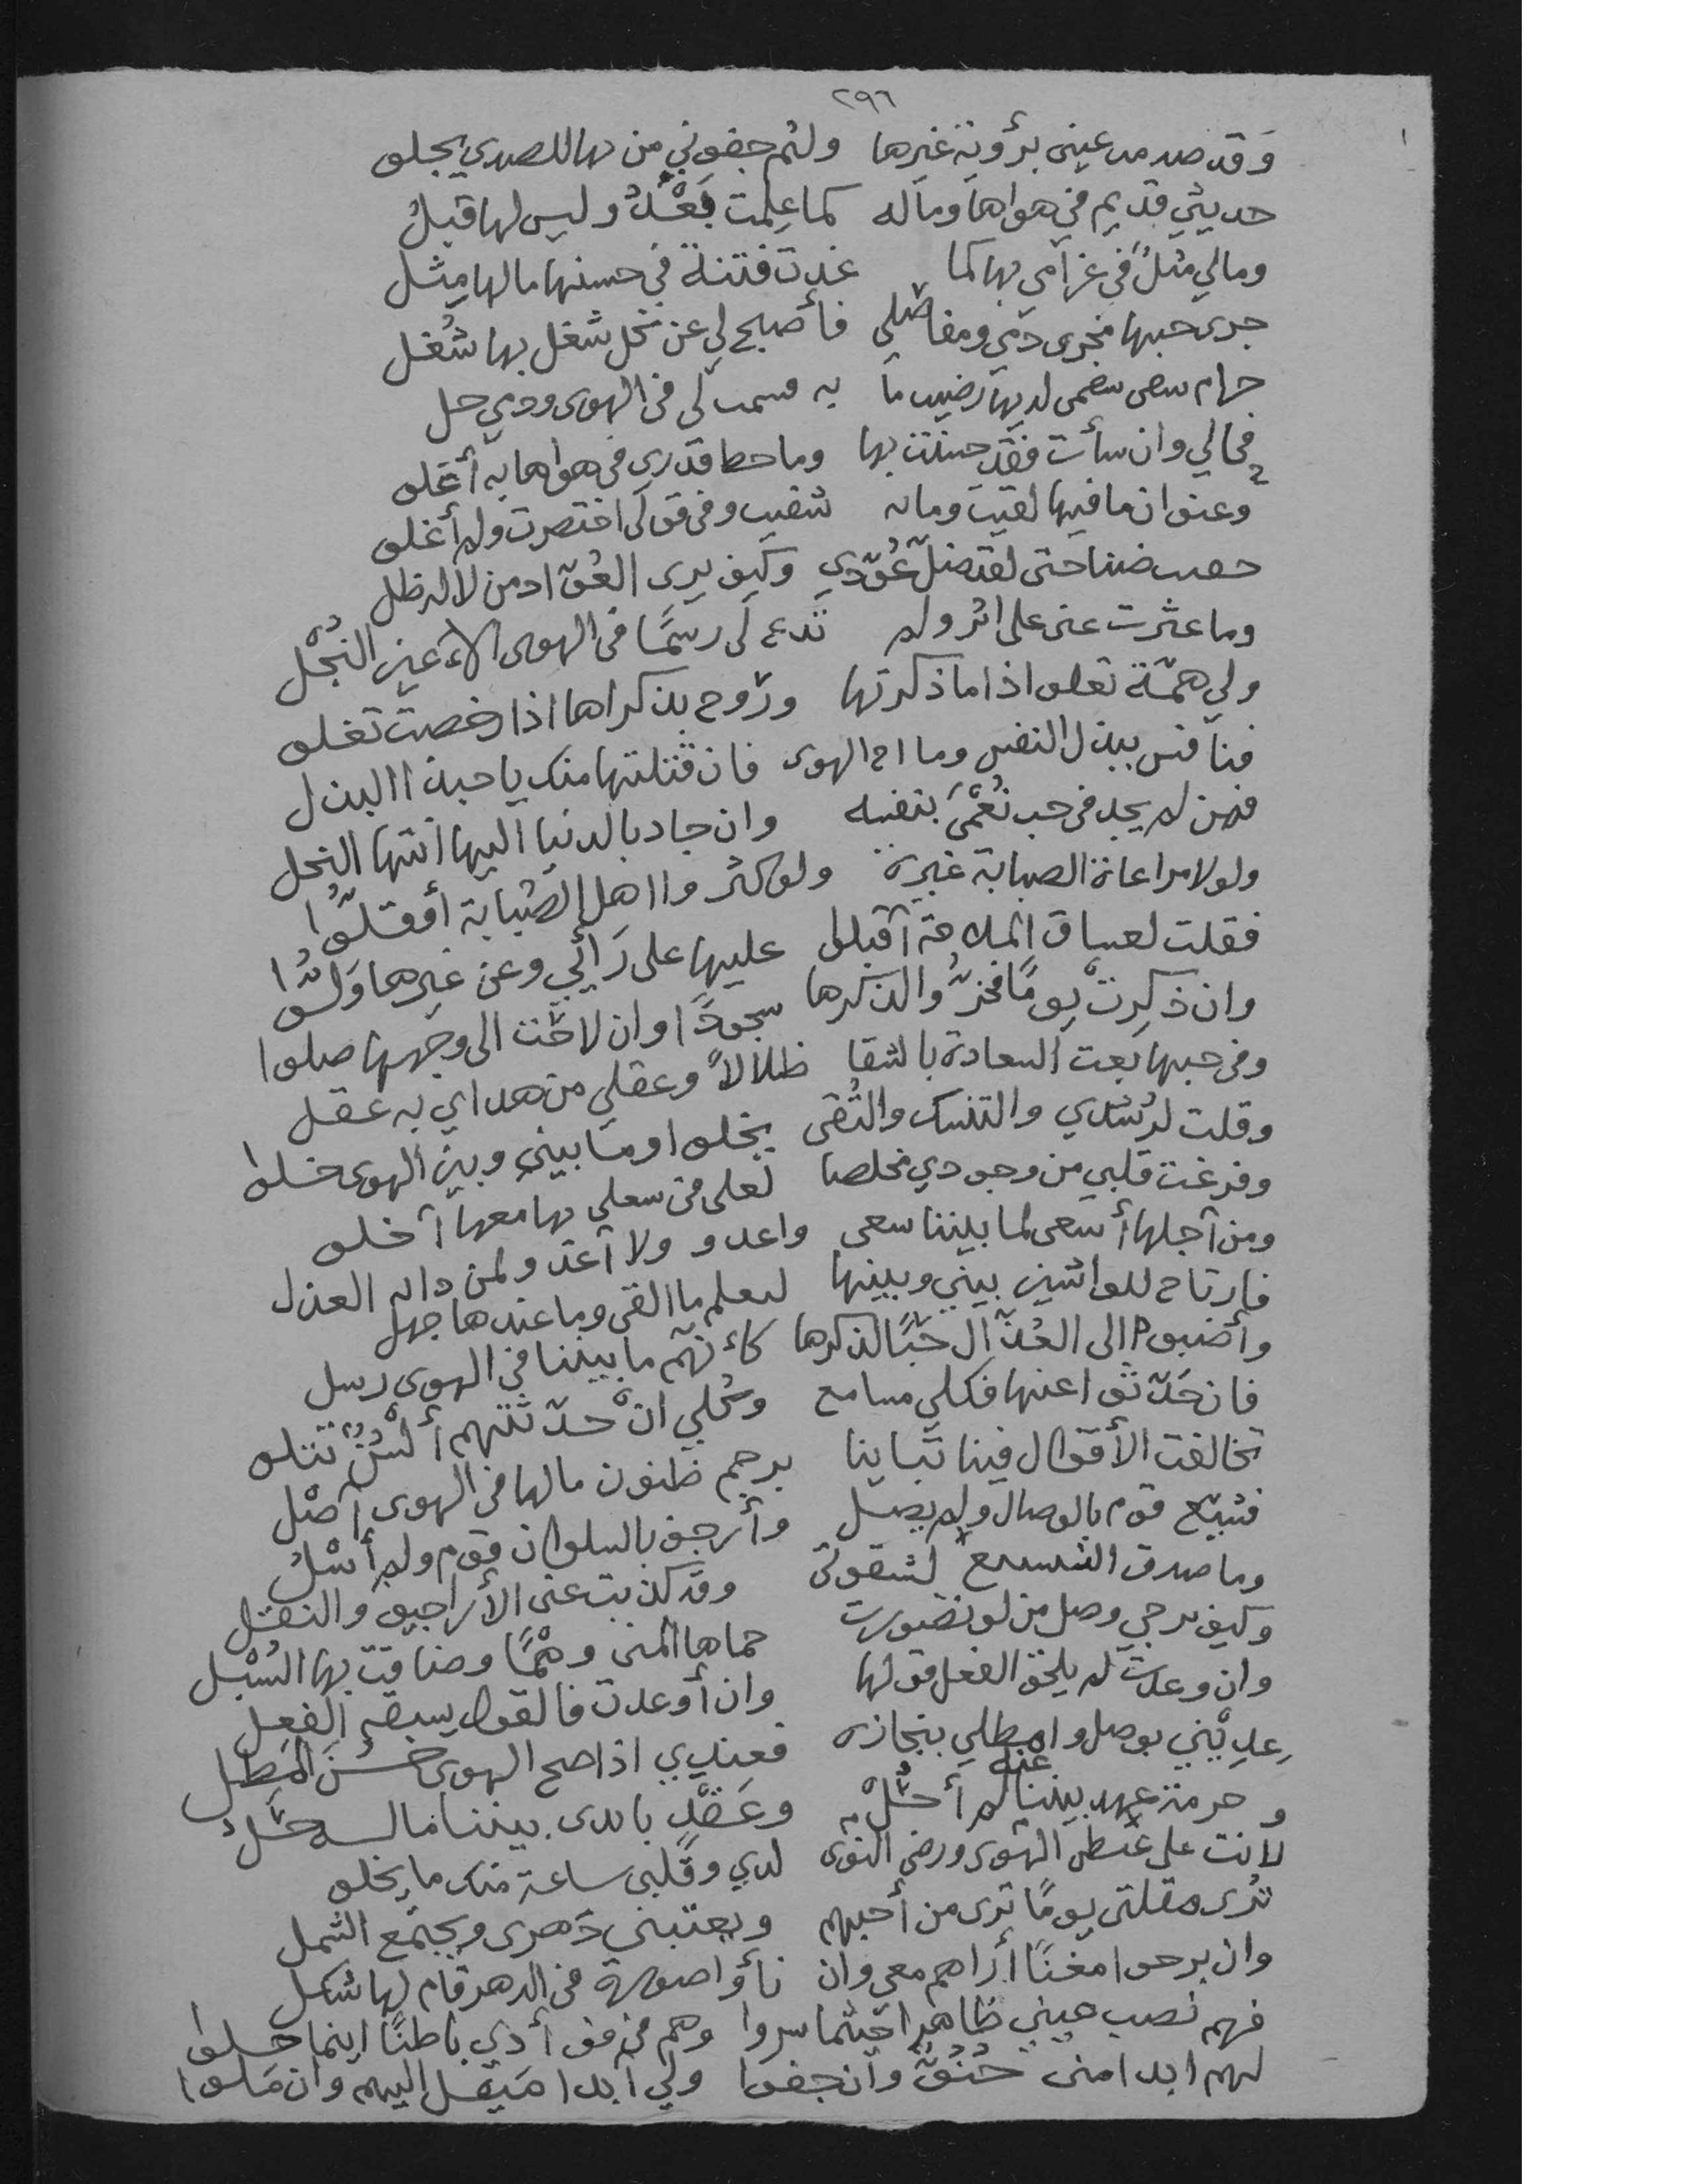 ٢٩٦
وَقد صدمد عيني برؤية غيرها ولثم جفوني من بها للصدي يجلو
حديثي قديم في هواها وماله كما علمت بَعْدٌ وليس لها قبلُ
ومالي مثلٌ في غرامي بها كما غدت فتنة في حسنها مالها مِثل
جرى حبها مجرى دمي ومفاصلي فأصبح لي عن كل شغل بها شُغل
حرام سقمى لديها رضيت ما به قسمت لي في الهوى ودمي حل
فحالي وان سأت فقد حسنت بها وما حط قدري في هواها به أعلو
وعنوان ما فيها لقيت وما به شقيت وفي قولي اختصرت ولم أغلو
ضنا حتى لقد ضلّ عُوّدي وكيف يرى العُوّاد من لا له ظل
وما عثرت عني على اثر ولم تدع لي رسمًا في الهوى الأعين النُجْل
ولي همّة تعلو اذا ما ذكرتها وروح بذكراها اذا رخصت تغلو
فنافس ببذل النفس وما اخ الهوى فان قتلتها منك يا حبذا البذل
فمن لم يجد في حب نُعْمَى بنفسه وان جاد بالدنيا اليها انتها البخل
ولولا مراعاة الصبابة غيرة ولو كثروا اهل الصَّبابة أو قلّوا
فقلت لعساق الملاحة أقبلوا عليها على رَأْيي وعن غيرها وَلّوا
وان ذكرت يومًا فخرُّوا لذكرها سجودًا وان لاحت الى وجهها صلوا
وفي حبها بعت السعادة بالشقا ظلالاً وعقلي من هداي به عقل
وقلت لرُشدي والتنسك والتُقى تخلوا وما بيني وبين الهوى خلوا
وفرغت قلبي من وجودي مخلصا لعلي في شغلي بها معها أخلو
ومن أجلها أسعى لما بيننا سعى واعدو ولا أعدو لمن دابه العذل
فارتاح للواشين بيني وبينها لتعلم ما القى وما عندها جهل
وأصبو الى العُذّال حُبًّا لذكرها كأنهم ما بيننا في الهوى رسل
فان حَدّثوا عنها فكلي مسامع وكُلي انْ حدّثتهم أَلسُنٌ تتلو
تخالفت الأقوال فينا تباينا برجم ظنون مالها في الهوى أصل
فشيّع قوم بالوصال ولم يصل وأرجف بالسلوان قوم ولم أسْلُ
وما صدق التشنيع لشقوتي وقد كذبت عني الأراجيف والنقل
وكيف يرجي وصل من لو تصورت حماها المنى وهْمًا وضاقت بها السُبْل
وان وعدت لم يلحق الفعل قولها وان أوعدت فالقول يسبقه الفِعل
عِديْني بوصل وامطلي بنجازه فعندي اذا صح الهوى حَسُنَ المَطل
وحرمة عهد بيننا عنه لم أحُلْ وعَقْدٍ بايدى بيننا ماله حَلُّ
لأنت على غيظ الهوى ورضى النوى لدي وقلبي ساعة منك ما يخلو
تُرى مقلتي يومًا ترى من أحبهم ويعتبني دَهري ويجتمع الشمل
وان برحوا مغنًا أراهم معي وان نأوا صورة في الدهر قام لها شكل
فهم نصب عيني ظاهرا حيثما سروا وهم في فؤادي باطنًا اينما حلوا
لهم ابدا مني حُنُوٌّ وان جفوا ولي أبدا مَيل اليهم وان مَلوا